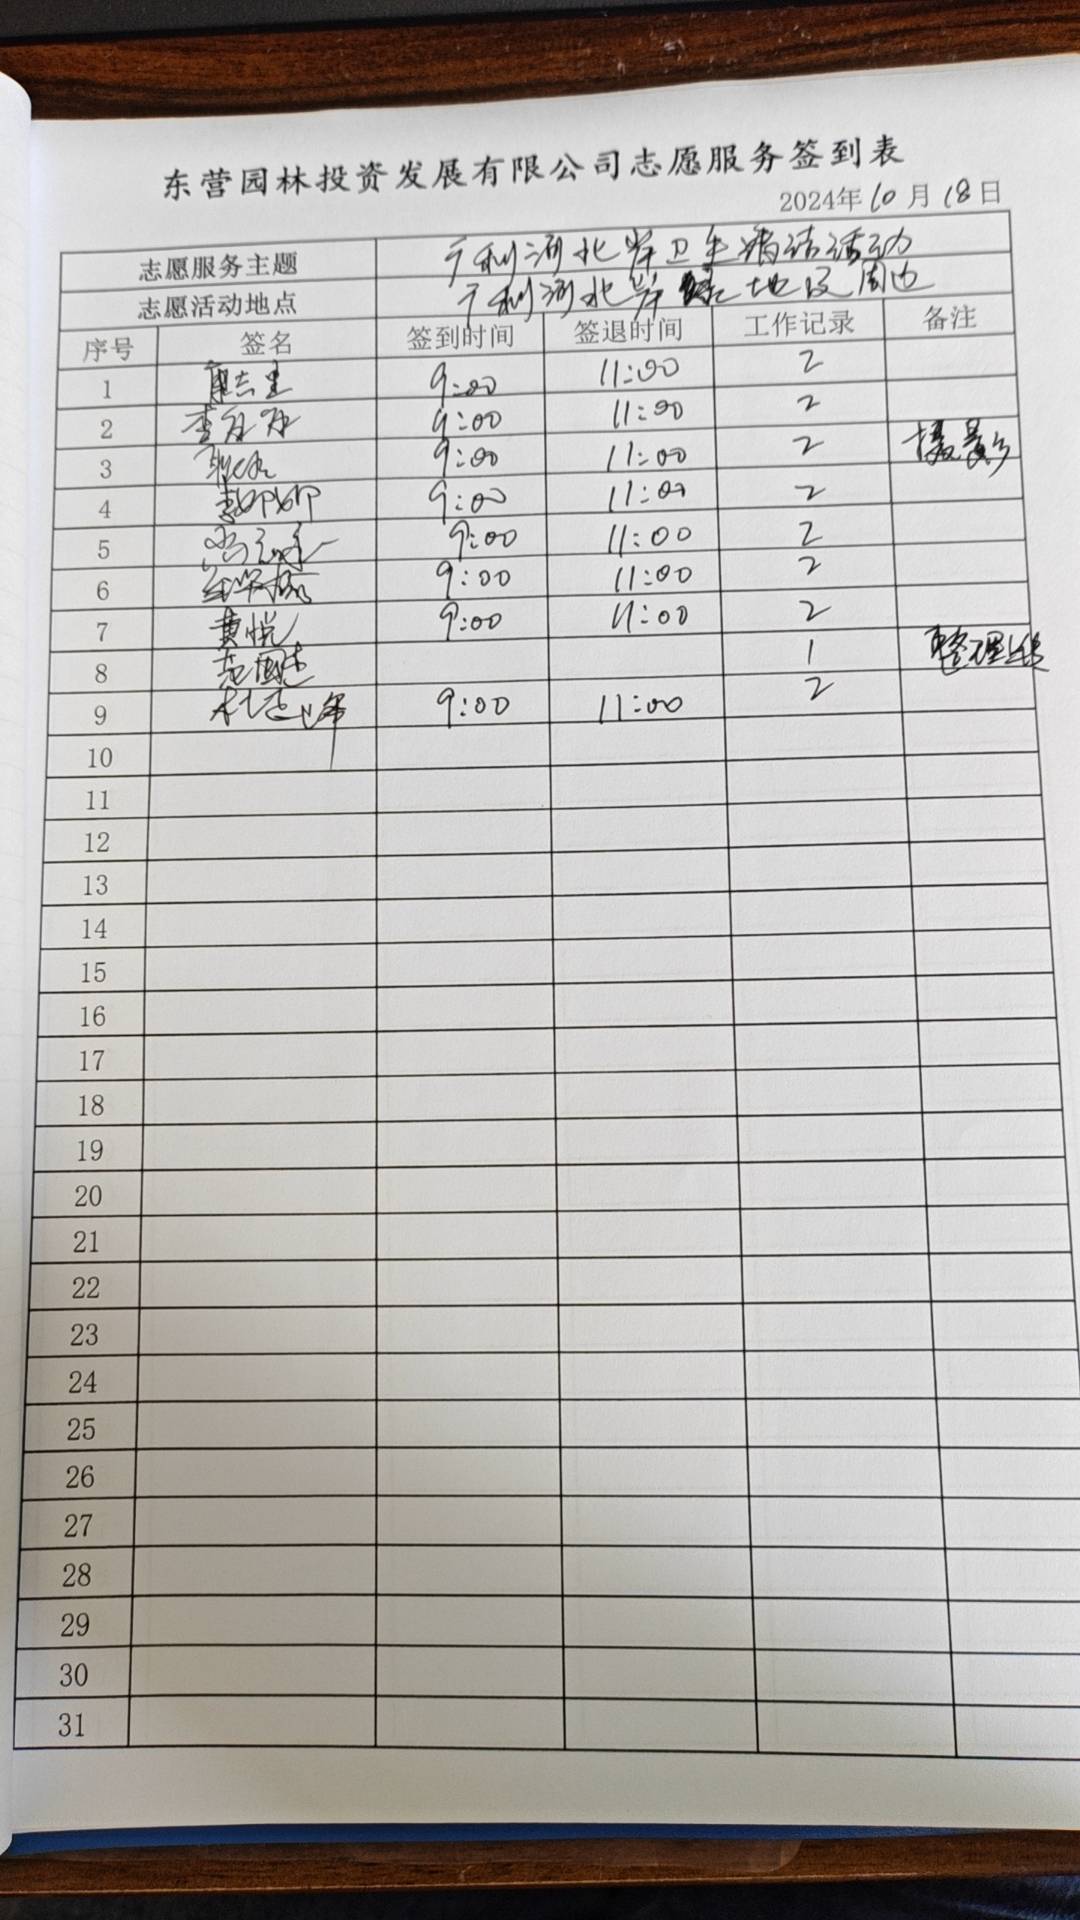 东营园林投资发展有限公司志愿服务签到表
2024年10月18日
志愿服务主题 广利河北岸卫生清洁活动
志愿活动地点 广利河北岸绿地及周边
序号 签名 签到时间 签退时间 工作记录 备注
1 9:00 11:00 2
2 9:00 11:00 2
3 9:00 11:00 2 摄影
4 9:00 11:00 2
5 9:00 11:00 2
6 9:00 11:00 2
7 黄悦 9:00 11:00 2
8 范国志 1 整理
9 9:00 11:00 2
10
11
12
13
14
15
16
17
18
19
20
21
22
23
24
25
26
27
28
29
30
31